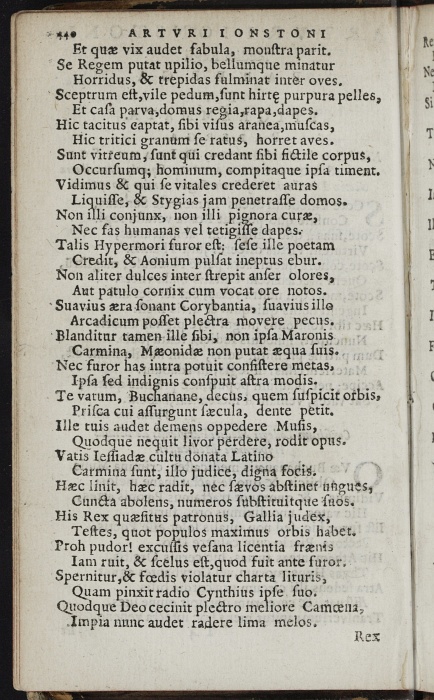 440 ARTVRI IONSTONI
Et quæ vix audet fabula, monſtra parit.
Se Regem putat upilio, bellumque minatur
Horridus, & trepidas fulminat inter oves.
Sceptrum eſt,vile pedum,ſunt hirtę purpura pelles,
Et caſa parva,domus regia,rapa,dapes.
Hic tacitus captat, ſibi viſus aranea,muſcas,
Hic tritici granum ſe ratus, horret aves.
Sunt vitreum, ſunt qui credant ſibi fictile corpus,
Occurſumq; hominum, compitaque ipſa timent.
Vidimus & qui ſe vitales crederet auras
Liquiſſe, & Stygias jam penetraſſe domos.
Non illi conjunx, non illi pignora curæ,
Nec fas humanas vel tetigiſſe dapes.
Talis Hypermori furor eſt: ſeſe ille poetam
Credit, & Aonium pulſat ineptus ebur.
Non aliter dulces inter ſtrepit anſer olores,
Aut patulo cornix cum vocat ore notos.
Suavius æra ſonant Corybantia, ſuavius illo
Arcadicum poſſet plectra movere pecus.
Blanditur tamen ille ſibi, non ipſa Maronis
Carmina, Mæonidæ non putat æqua ſuis.
Nec furor has intra potuit conſiſtere metas,
Ipſa ſed indignis conſpuit aſtra modis.
Te vatum, Buchanane, decus, quem ſuſpicit orbis,
Priſca cui aſſurgunt ſæcula, dente petit.
Ille tuis audet demens oppedere Muſis,
Quodque nequit livor perdere, rodit opus.
Vatis Ieſſiadæ cultu donata Latino
Carmina ſunt, illo judice, digna focis.
Hæc linit, hæc radit, nec ſævos abſtinet ungues,
Cuncta abolens, numeros ſubſtituitque ſuos.
His Rex quæſitus patronus, Gallia judex,
Teſtes, quot populos maximus orbis habet.
Proh pudor! excuſſis veſana licentia frænis
Iam ruit, & ſcelus eſt,quod fuit ante furor.
Spernitur,& fœdis violatur charta lituris,
Quam pinxit radio Cynthius ipſe ſuo.
Quodque Deo cecinit plectro meliore Camœna,
Impia nunc audet radere lima melos.
Rex